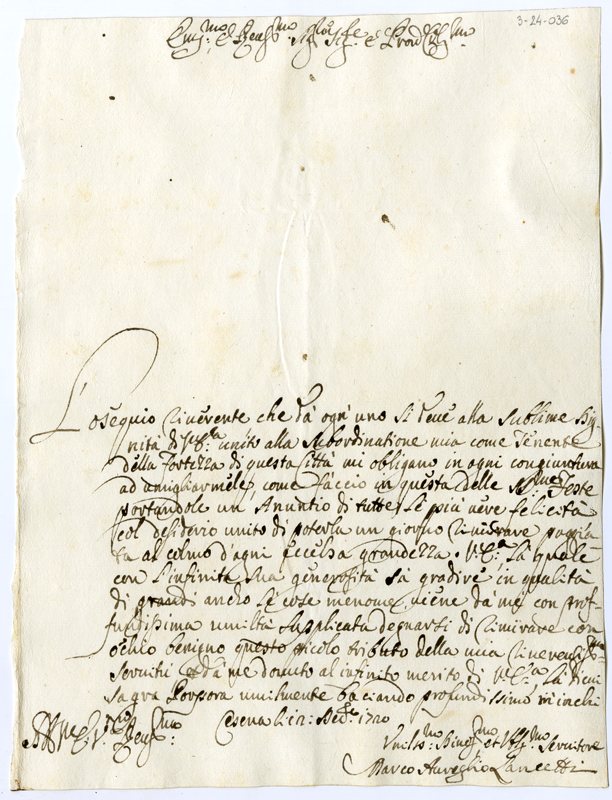 3-24-036
Em̃o: e Reu.mo Sig.r Sig.r e Prõn Col.mo
L'osequio riuerente che da ogn'uno si deue alla sublime Dig-
nità di V. E.za unito alla subordinatione mia come Tenente
della Fortezza di questa Città mi obligano in ogni congiuntura
ad umigliarmele, come faccio in questa delle S.me Feste
portandole un Anuntio di tutte le più uere felicità
col desiderio unito di poterla un giorno rimirare
al colmo d'ogni eccelsa grandezza. V. E.za la quale
con l'infinita sua generosità sà gradire in qualità
di grandi anche le cose menome, uiene da me con prof-
fundissima umiltà supplicata degnarsi di rimirare con
ochio benigno questo picolo tributo della mia riuerentis.ma
seruitù da me douuto al infinito merito di V. E.za la di cui
sagra Porpora umilmente baciando profundissimo m'inchi
Cesena li 12: Dec.e 1720
Umilis.mo Diu.mo et Obl.mo Seruitore
Marco Aureglio Lancetti